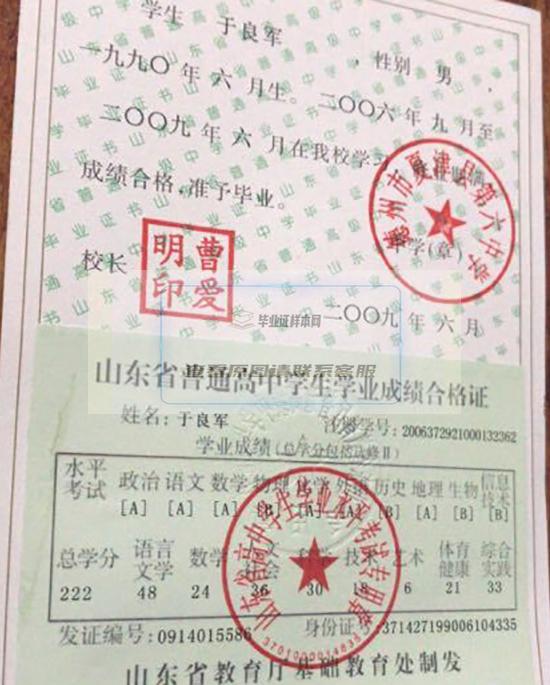 学生 于良军 ，性别 男，
一九九〇年六月生。二〇〇六年九月至
二〇〇九年六月在我校学习
成绩合格，准予毕业。
德州市夏津县第六中学
中学(章)
校长
曹爱明印
二〇〇九年六月
毕业证样本网
山东省普通高中学生学业成绩合格证
姓名：于良军 注册学号：2006372921000132362
学业成绩（总学分包括选修Ⅱ）
水平考试 政治 语文 数学 物理 化学 外语 历史 地理 生物 信息技术
[A] [A] [A] [B] [A] [B] [B]
总学分 语言文学 数学 技术 艺术 体育健康 综合实践
222 48 24 36 30 18 6 21 33
发证编号：0914015586 身份证号：371427199006104335
3701000014835
山东省教育厅基础教育处制发